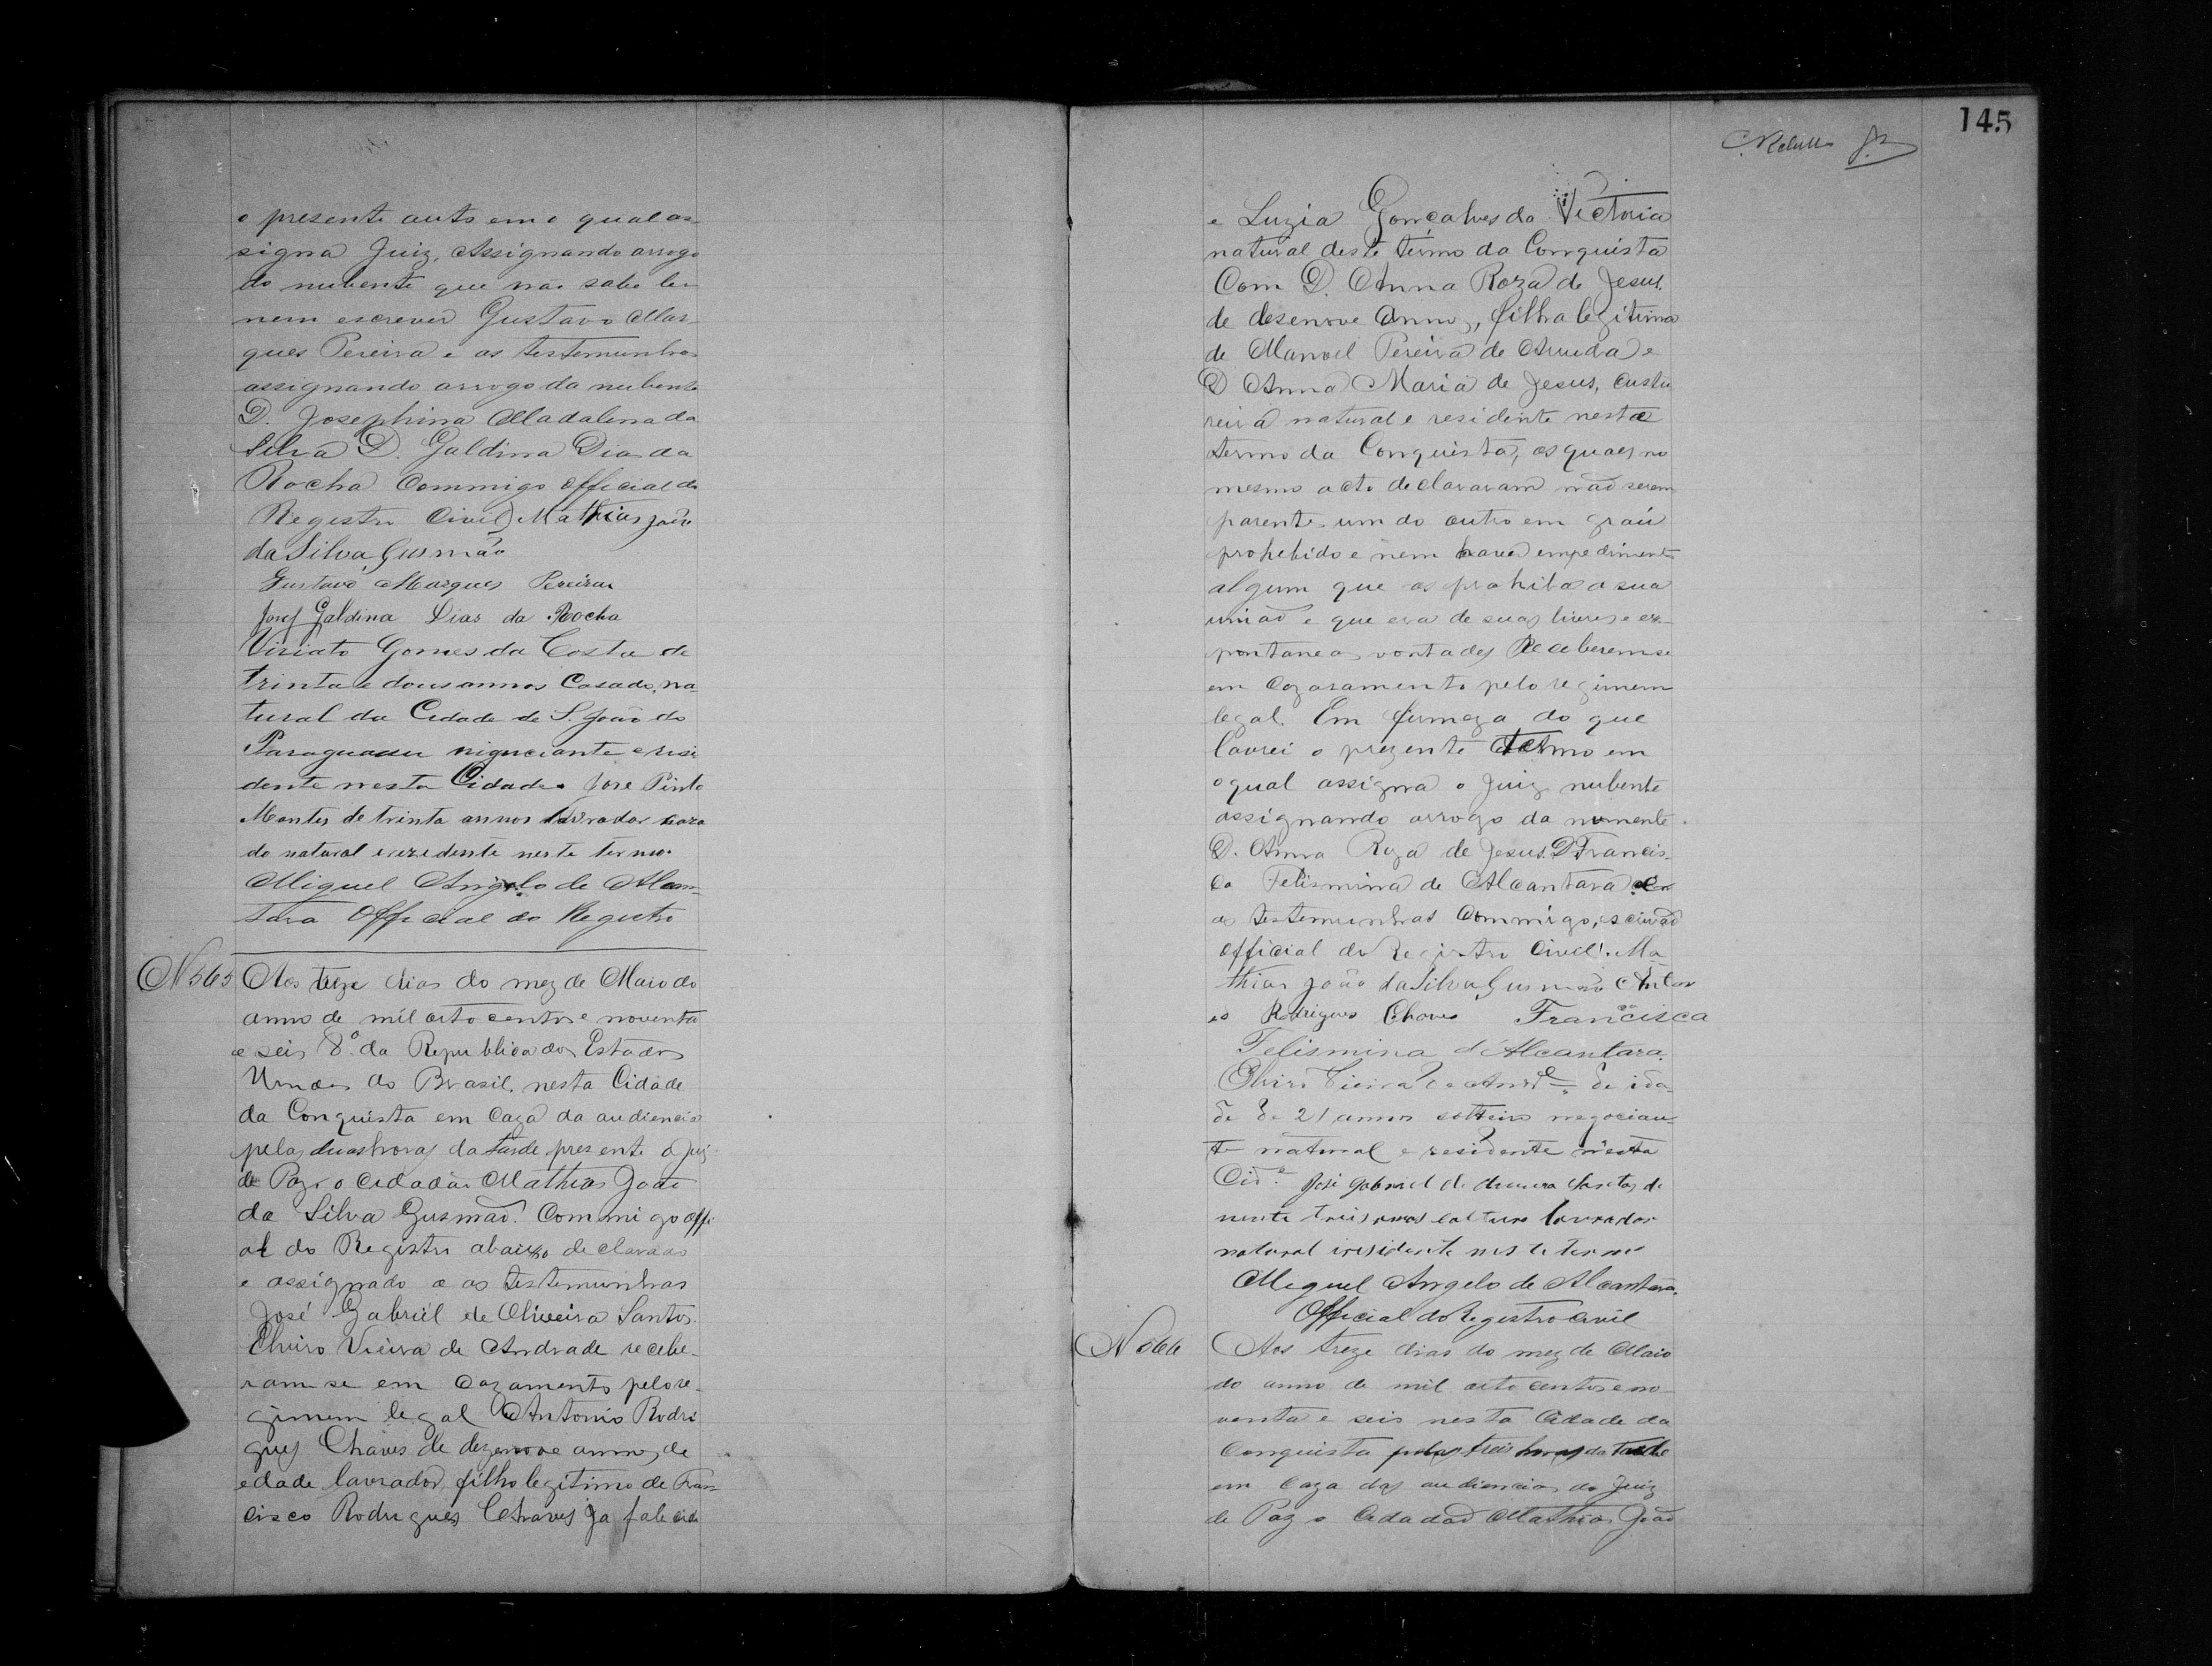 o presente auto em o qual as-
signa Juiz, Assignando arrogo
do nubente que nao sabe ler
nem escrever Gustavo Mar-
ques Pereira e as testemunhas
assignando arrogo da nubente
D. Josephina Madalena da
Silva D. Galdina Dias da
Rocha Commigo official do
Registro Civil Mathias João
da Silva Gusmão
Gustavo Marques Pereira
Galdina Dias da Rocha
Viriato Gomes da Costa de
trinta e dous annos Casado, na-
tural da Cidade de S. João do
Paraguassu e resi
dente nesta Cidade. José Pinto
Montes de trinta annos lavrador caza
do natural e rezidente neste termo.
Miguel Angelo de Alcan-
tara Official do Registro
N 565 Aos treze dias do mez de Maio do
anno de mil oito centos e noventa
e seis 8º da Republica dos Estados
Unidos do Brasil, nesta Cidade
da Conquista em Caza da audiencia
pelas duas horas da tarde presente o Juiz
de Paz o Cidadão Mathias João
da Silva Gusmão. Commigo offi
al do Registro abaixo declarado
e assignado e as testemunhas
José Gabriel de Oliveira Santos.
Vieira de Andrade recebe-
ram se em Cazamento pelo re-
gimem legal Antonio Rodri
gues Chaves de dezenove annos de
edade lavrador, filho legitimo de Fran-
cisco Rodrigues Chaves ja falecido
145
e Luzia Gonçalves da Victoria
natural deste termo da Conquista
Com D. Anna Roza de Jesus.
de desenove annos, filha legitima
de Manoel Pereira de Arruda e
D Anna Maria de Jesus, custu
reira natural e residente neste
termo da Conquista, os quaes no
mesmo acto declararam não serem
parentes um do outro em graú
prohebido e nem haver empedimento
algum que os prohiba a sua
união e que era de suas livres e es-
pontaneas vontades Receberemse
em Cazasamento pelo regimem
legal. Em firmeza do que
lavrei o prezente termo em
o qual assigna o Juiz nubente
assignando arrogo da numente.
D. Anna Roza de Jesus. D Francis-
ca Felismina de Alcantara
as testemunhas Commigo, escrivão
official do Registro Civil. Ma
thias João da Silva Gusmão Anton
io Rodrigues Chaves Francisca
Felismina d'Alcantara.
Vieira de Andrde de ida
de de 21 annos solteiro negocian-
te natural e residente nesta
Cidᵉ. José Gabriel de Santos de
vinte treis annos lavrador
natural iresidente neste termo
Miguel Angelo de Alcantara.
Official do Registro Civil
N 566 Aos treze dias do mez de Maio
do anno de mil oito centos e no-
venta e seis nesta Cidade da
Conquista pelas treis horas da tarde
em Caza das audiencias do Juiz
de Paz o Cidadão Mathias João